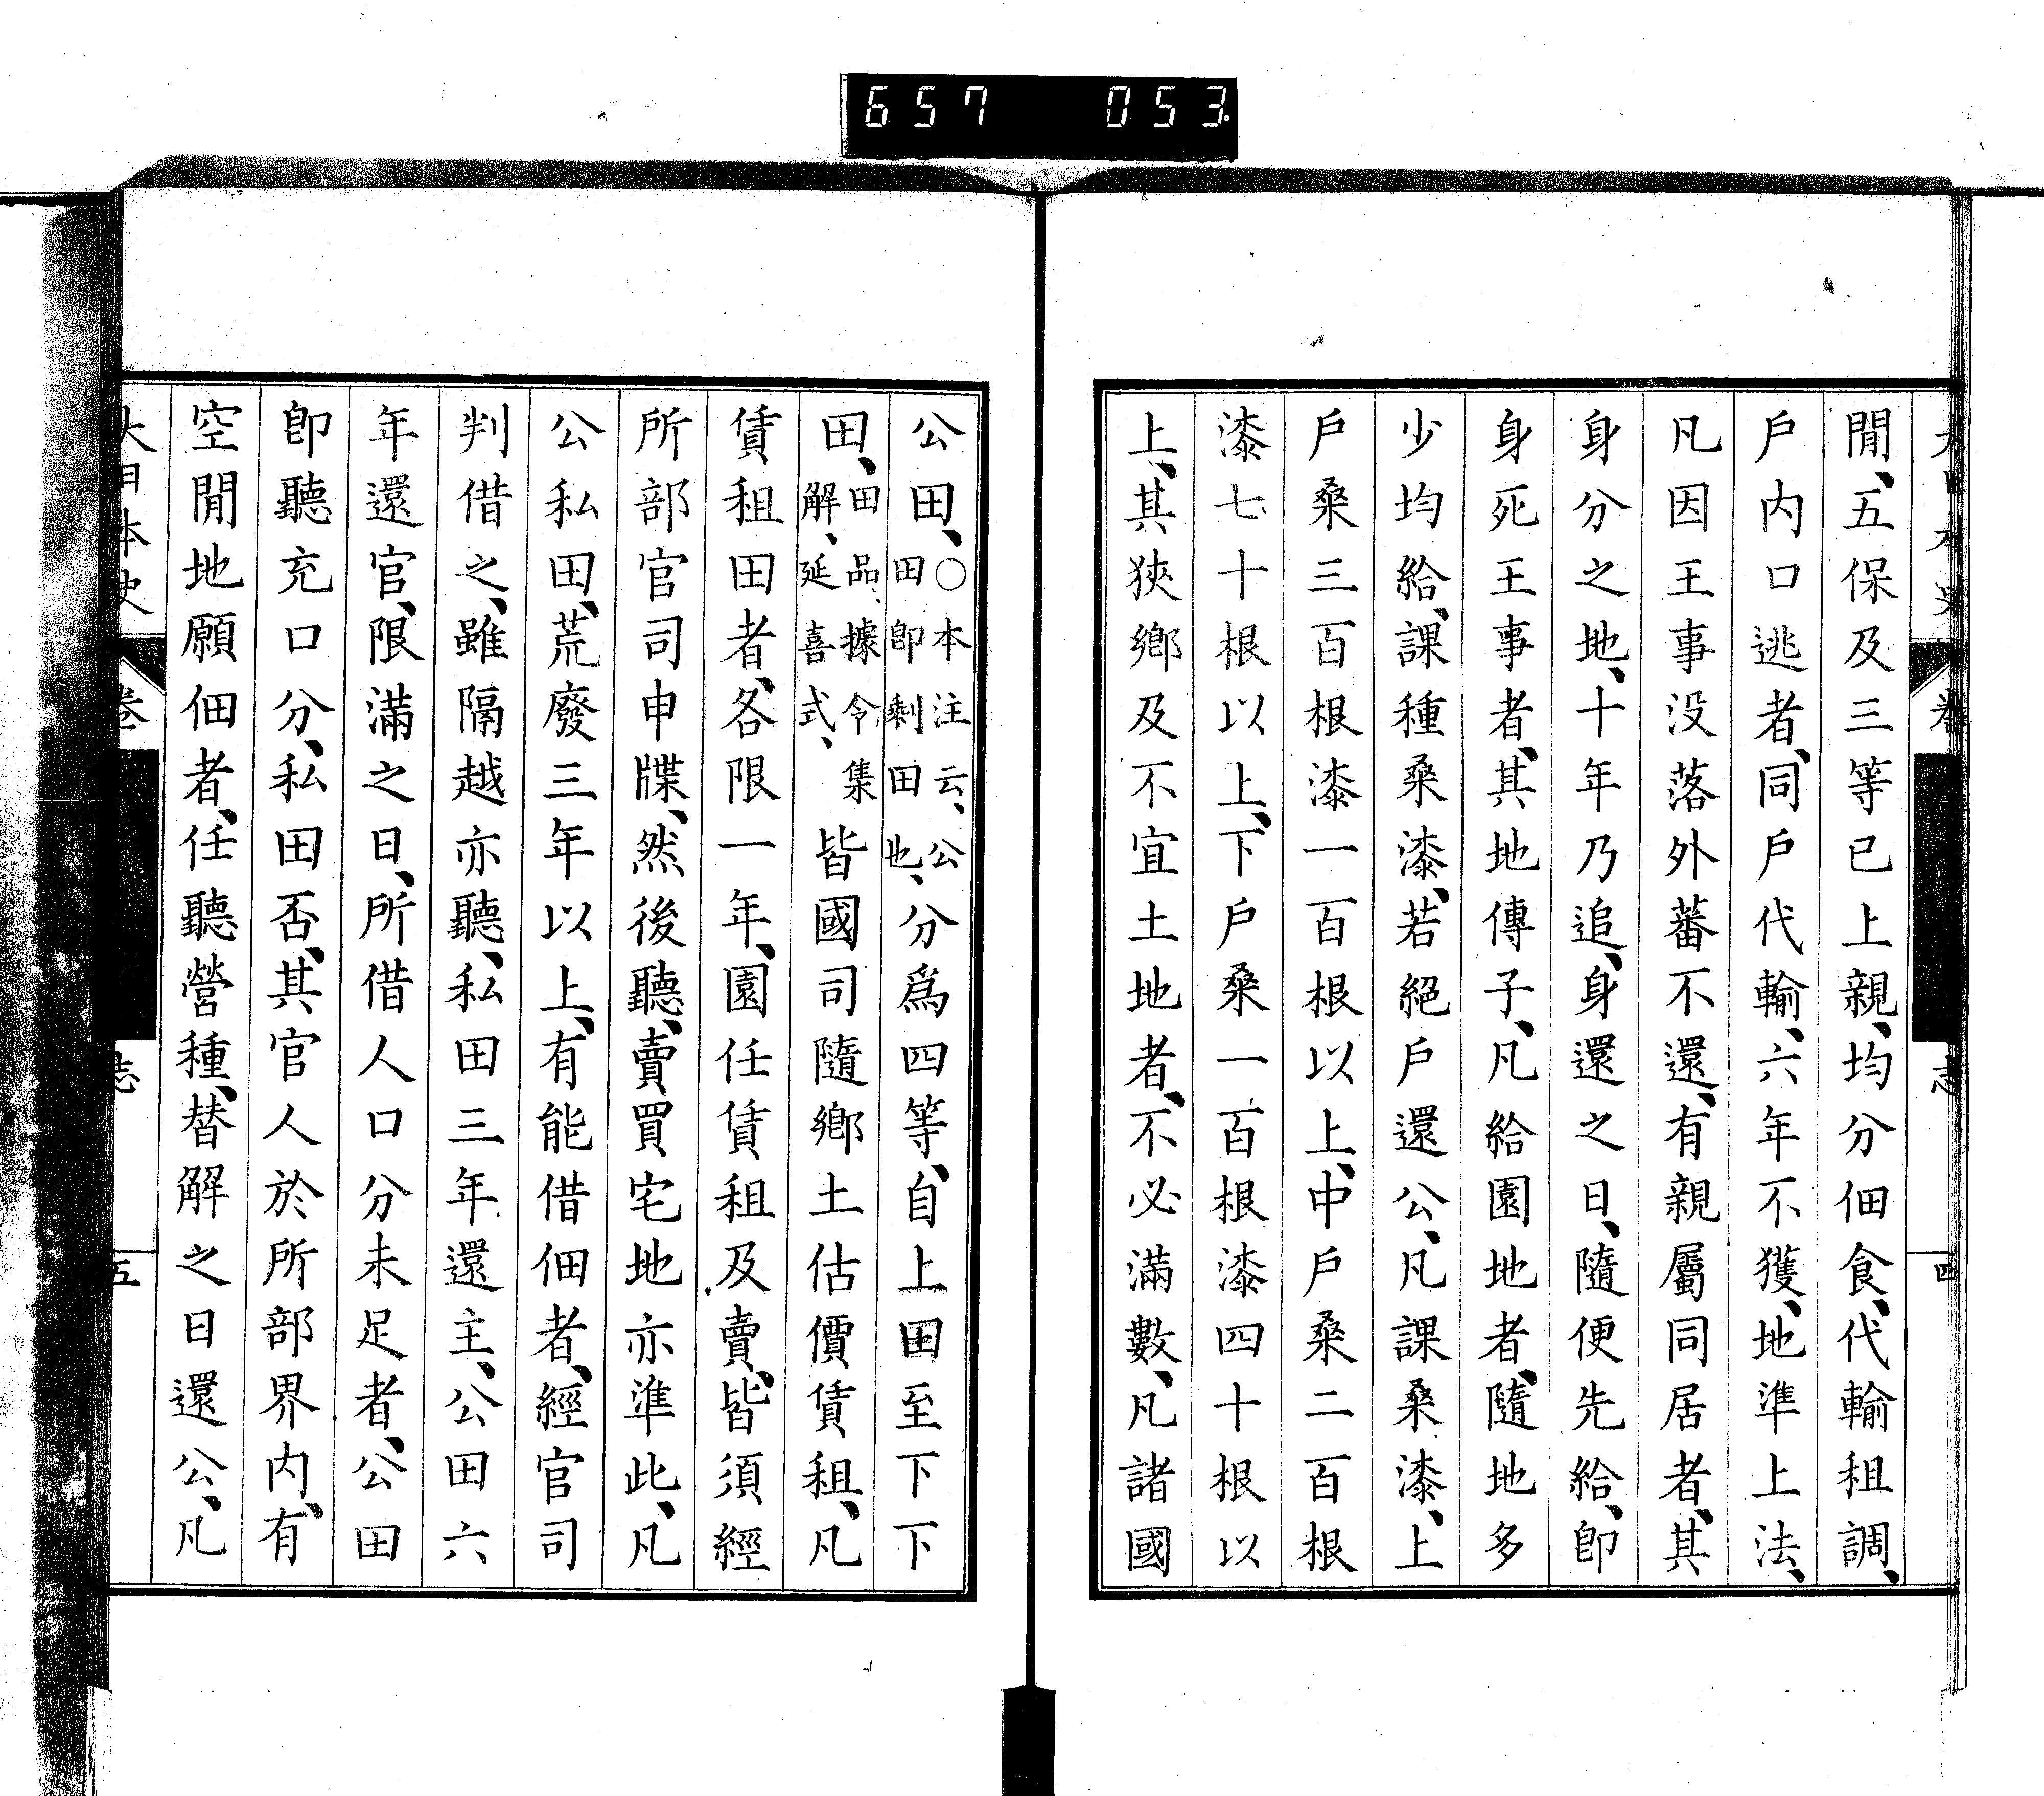 657 053
大日本史 卷 志 四
閒、五保及三等已上親、均分佃食、代輸租調、
戶内口逃者、同戶代輸、六年不獲、地準上法、
凡因王事没落外蕃不還、有親屬同居者、其
身分之地、十年乃追、身還之日、隨便先給、卽
身死王事者、其地傳子、凡給園地者、隨地多
少均給、課種桑漆、若絕戶還公、凡課桑漆、上
戶桑三百根漆一百根以上、中戶桑二百根
漆七十根以上、下戶桑一百根漆四十根以
上、其狹鄉及不宜土地者、不必滿數、凡諸國
公田、○本注云、公田卽剩田也、分爲四等、自上田至下下
田、田品、據令集解、延喜式、皆國司隨鄉土估價賃租、凡
賃租田者、各限一年、園任賃租及賣、皆須經
所部官司申牒、然後聽、賣買宅地亦準此、凡
公私田、荒廢三年以上、有能借佃者、經官司
判借之、雖隔越亦聽、私田三年還主、公田六
年還官、限滿之日、所借人口分未足者、公田
卽聽充口分、私田否、其官人於所部界内、有
空閒地願佃者、任聽營種、替解之日還公、凡
大日本史 卷 志 五